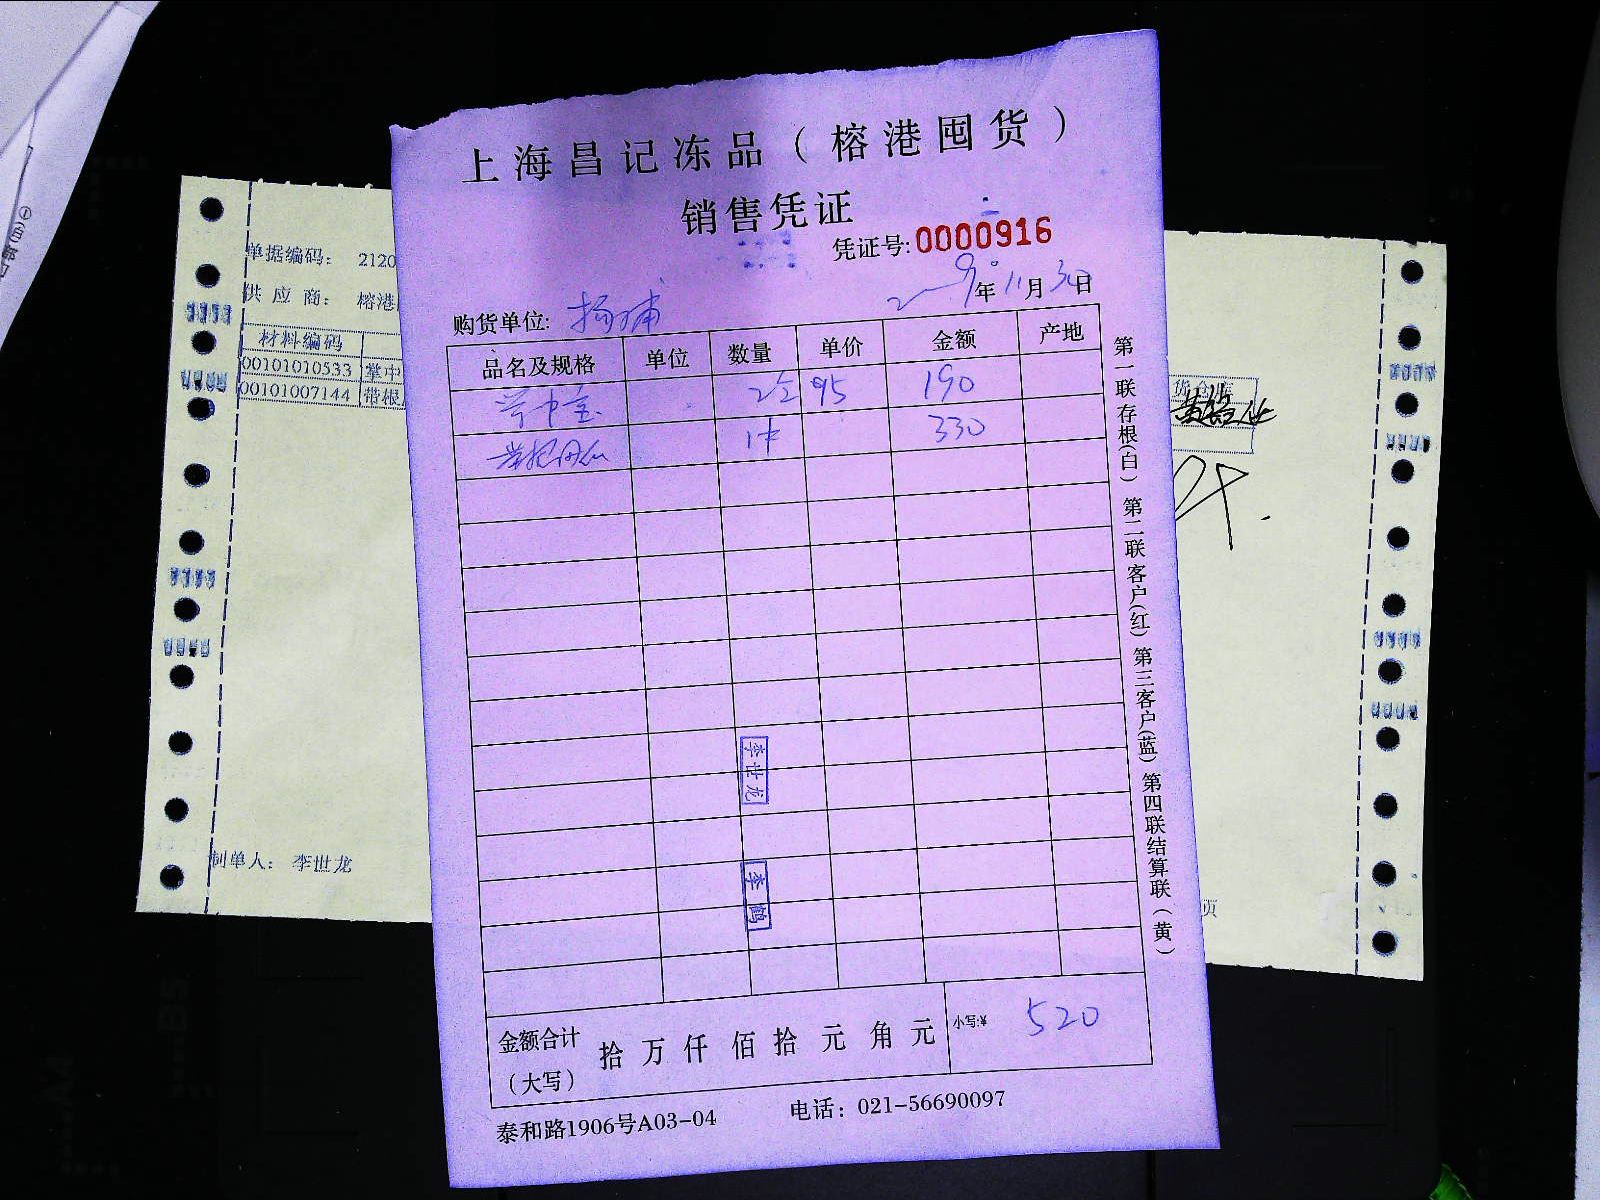 上海昌记冻品（榕港囤货）
销售凭证
凭证号:0000916
年11月30日
购货单位: 杨浦
品名及规格 单位 数量 单价 金额 产地
掌中宝 2包 95 190
1件 330
金额合计（大写） 拾万仟佰拾元角元 小写:¥ 520
泰和路1906号A03-04 电话：021-56690097
第一联存根(白) 第二联客户(红) 第三客户(蓝) 第四联结算联(黄)
李世龙
李鹤
单据编码： 2120
供应商： 榕港
材料编码
00101010533 掌中
00101007144 带根
制单人： 李世龙
页